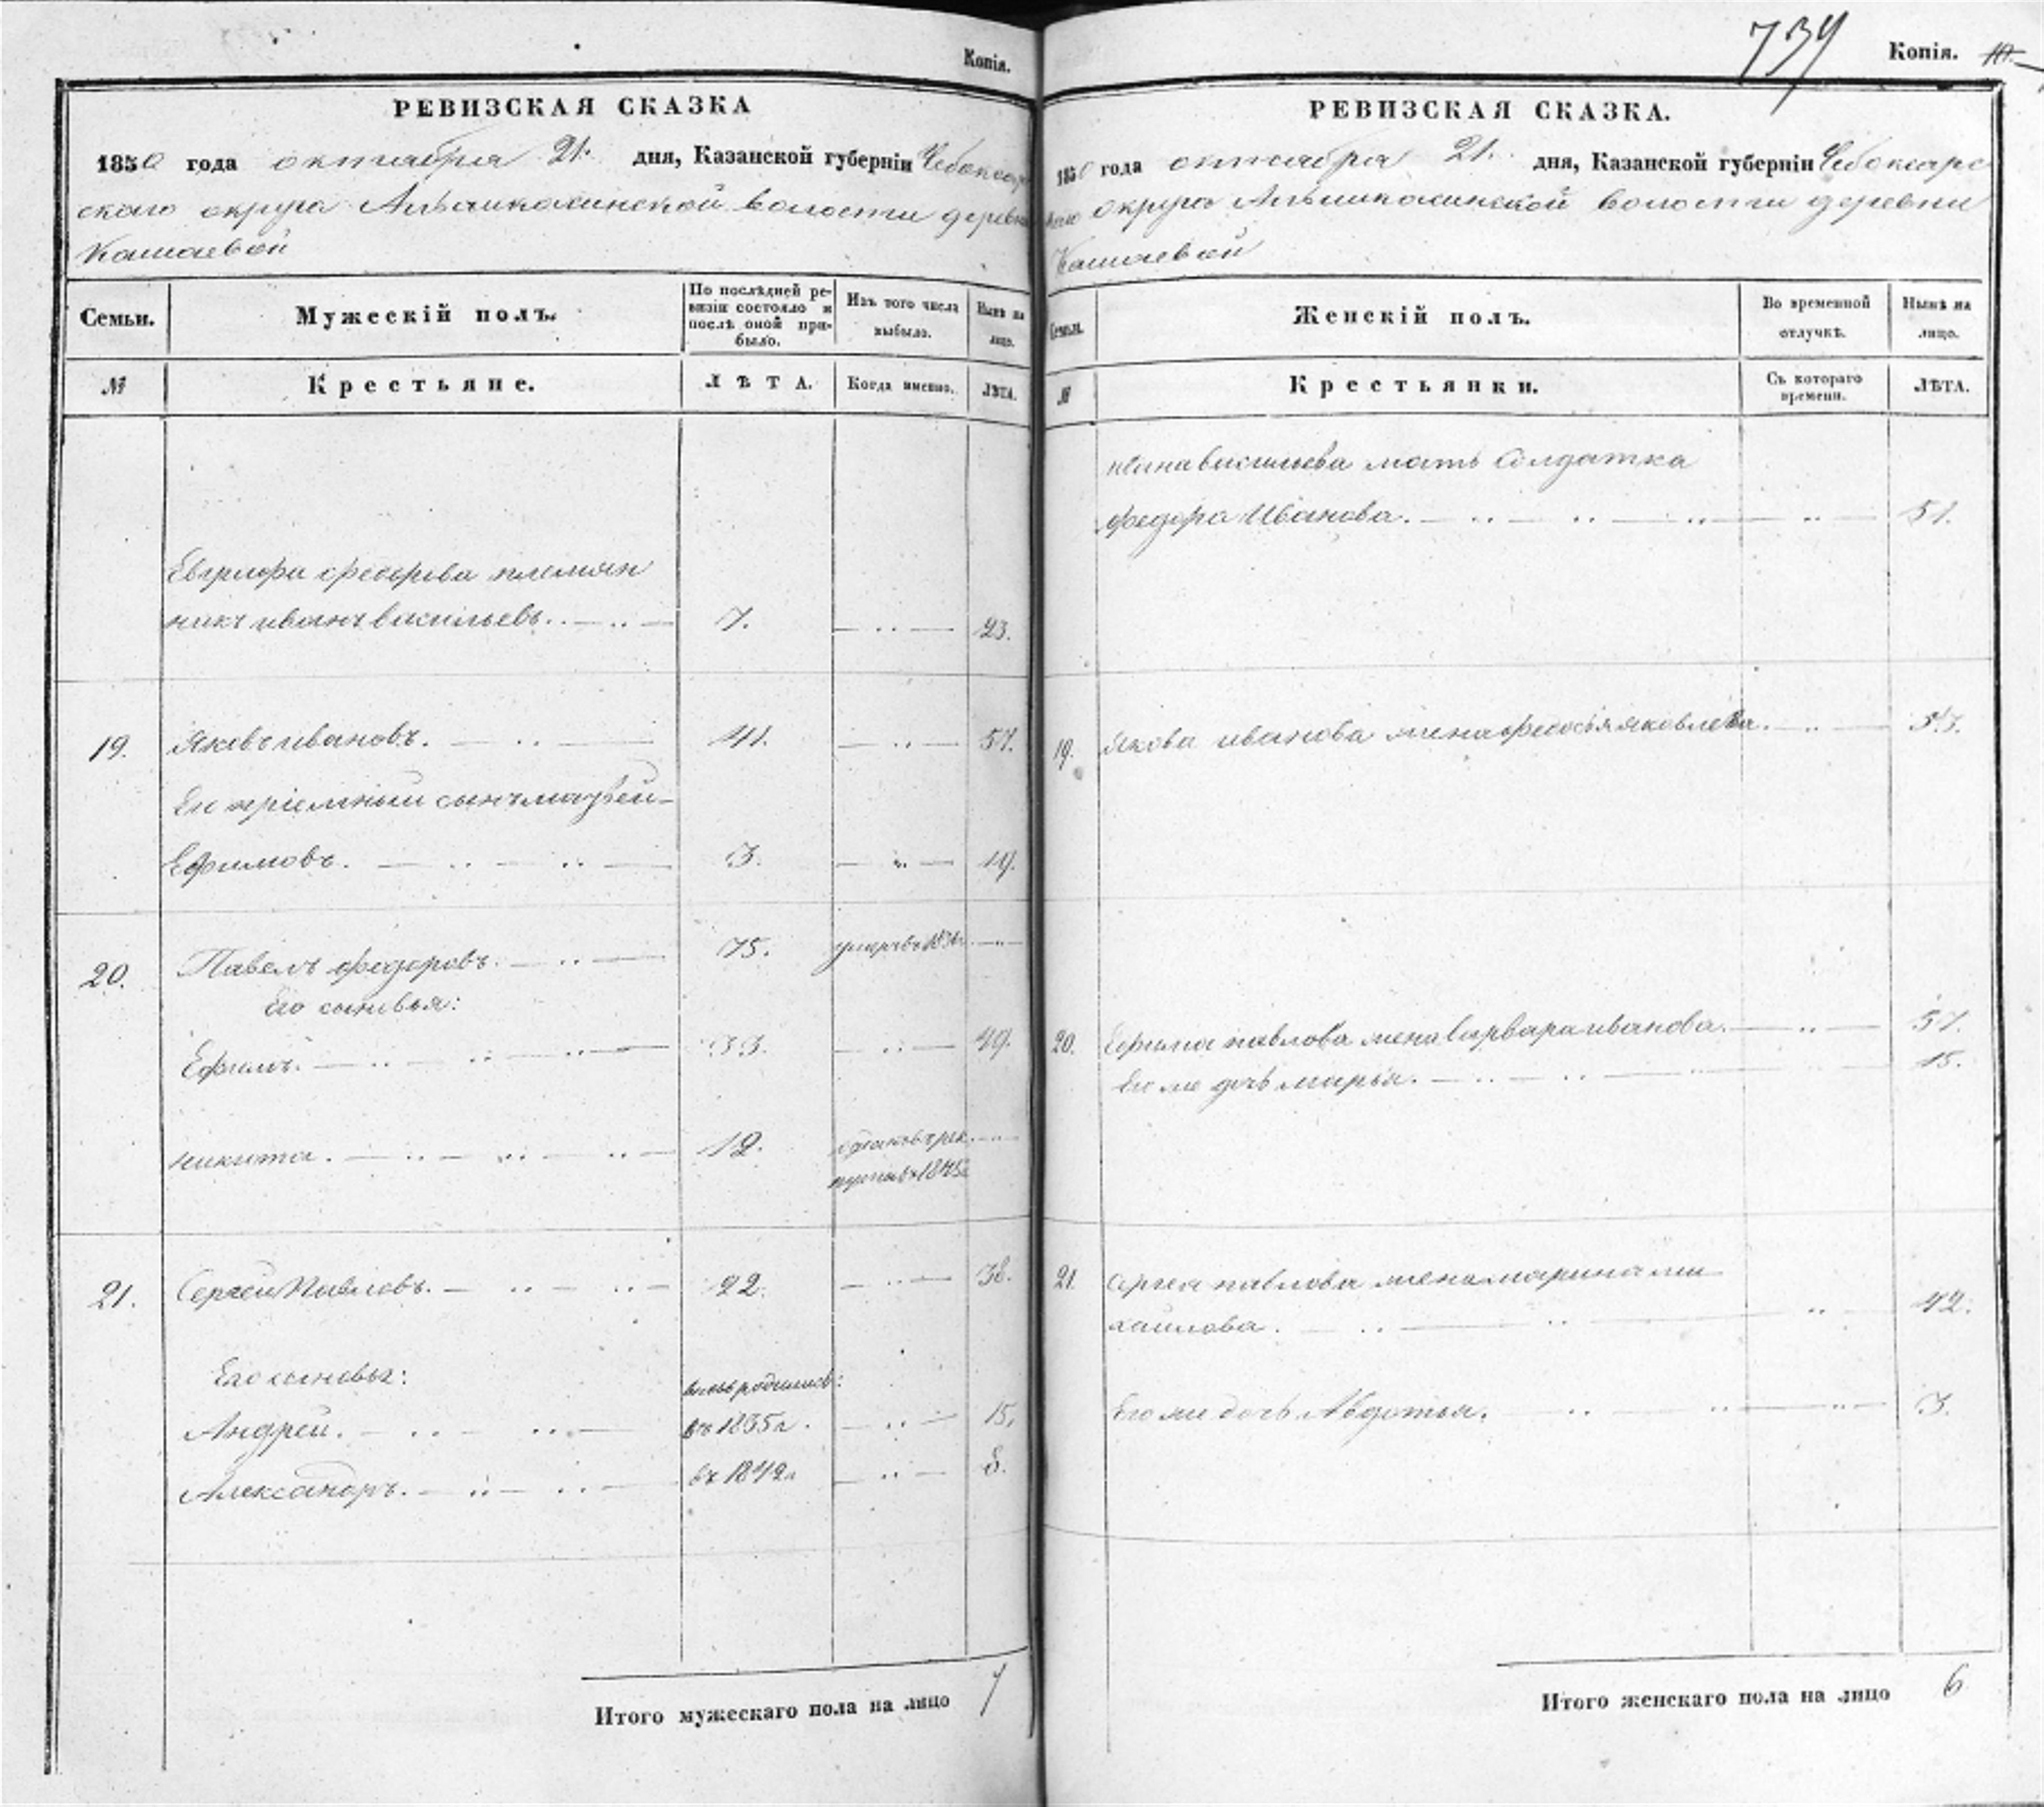 Копія.
РЕВИЗСКАЯ СКАЗКА
1850 года октября 21. дня, Казанской губерніи Чебоксар
скаго округа Алымкасинской волости деревни
Кашаевой
Семьи.
Мужескій полъ.
По послѣдней ре-
визіи состояло и
послѣ оной при-
было.
Изъ того числа
выбыло.
Нынѣ на
лицо.
№
Крестьяне.
ЛѢТА.
Когда именно.
ЛѢТА.
федорова племян
никъ иванъ васильевъ. 7. 23.
19. Яковъ ивановъ. 41. 57.
Ег пріемный сынъ матвей
Ефимовъ. 3. 19.
20. Павелъ федоровъ. 75.
Его сыновья:
Ефимъ. 33. 49.
никита. 12. 1845
21. Сергей Павловъ. 22. 38.
Его сыновья: вновь родились:
Андрей. въ 1835 г. 15.
Александръ. въ 1842 г. 8.
Итого мужескаго пола на лицо 7
739 Копія.
РЕВИЗСКАЯ СКАЗКА.
1850 года октября 21. дня, Казанской губерніи Чебоксарс
каго округа Алымкасинской волости деревни
Кашаевой
Семьи.
Женскій полъ.
Во временной
отлучкѣ.
Нынѣ на
лицо.
№
Крестьянки.
Съ котораго
времени.
ЛѢТА.
васильева мать солдатка
федора Иванова. 51.
19. Якова иванова жена федосья яковлева.
20. Ефима павлова жена варвара иванова. 51.
Его же дочь марья. 15.
21. Сергея павлова жена марина ми
хайлова. 42.
Его же дочь Авдотья. 3.
Итого женскаго пола на лицо 6